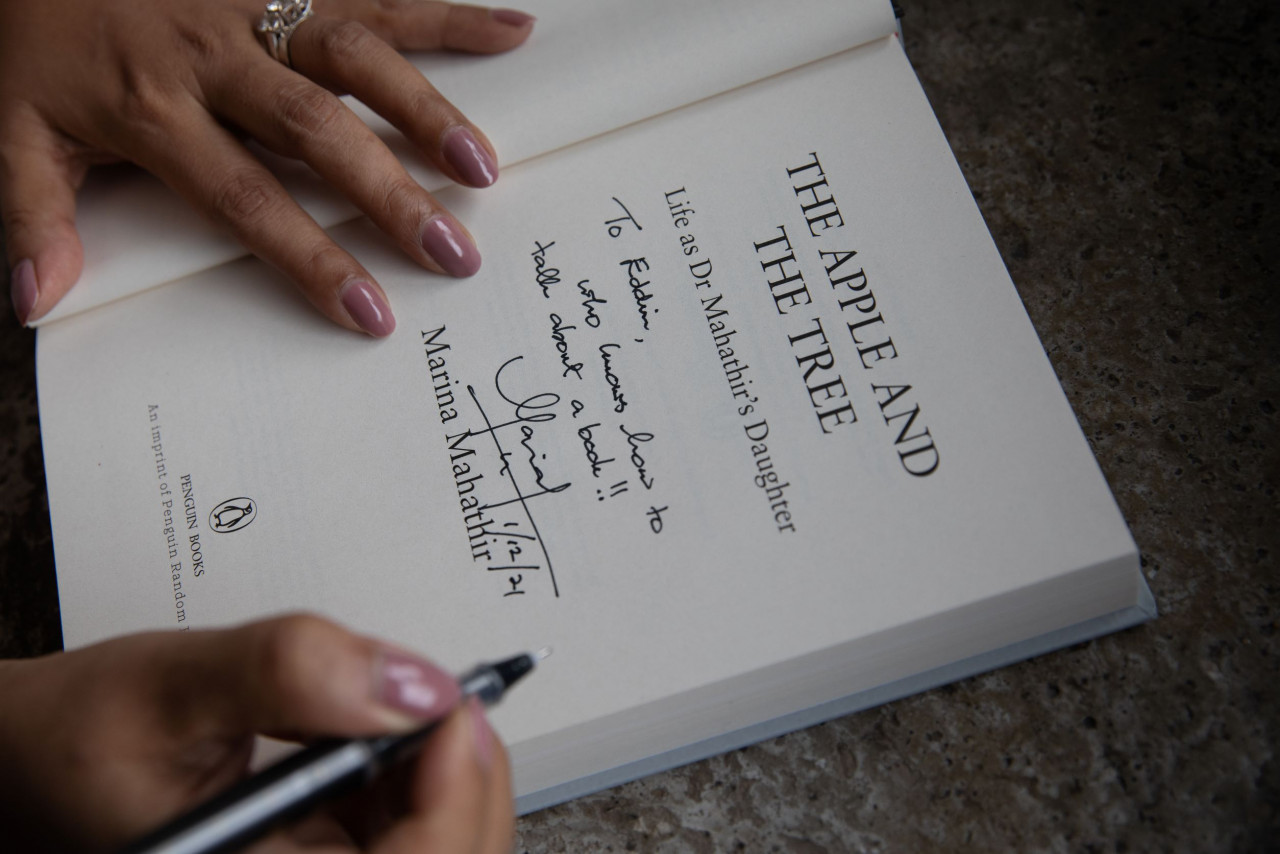 THE APPLE AND
THE TREE
Life as Dr Mahathir's Daughter
To Eddin,
who knows how to
talk about a book!!
Marina
Marina Mahathir
1/12/21
PENGUIN BOOKS
An imprint of Penguin Random